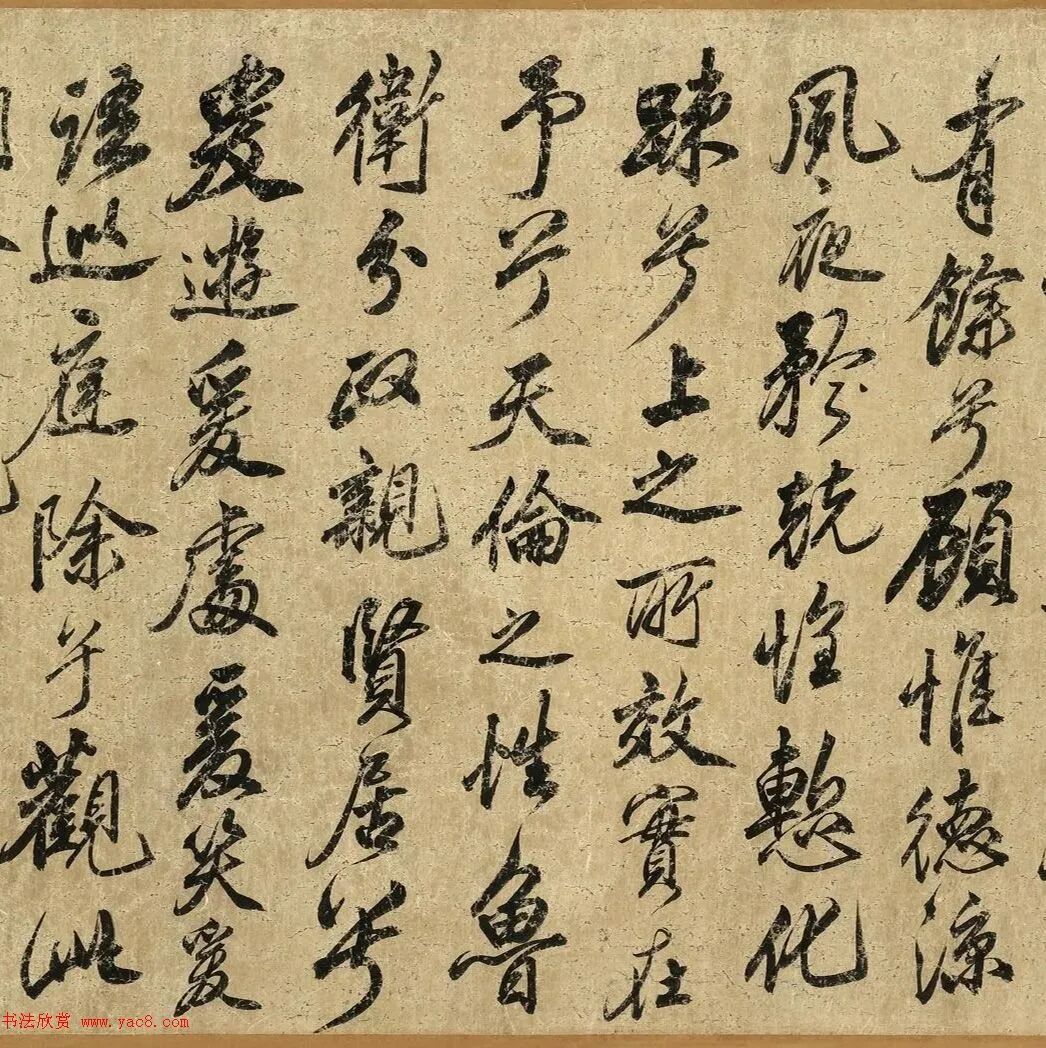 有餘兮顧惟德涼
夙夜兢兢惟慙化
踈兮上之所效實在
予兮天倫之性魯
衛分政親賢居兮
爰遊爰處爰笑爰
語巡庭除兮觀此
书法欣赏 www.yac8.com